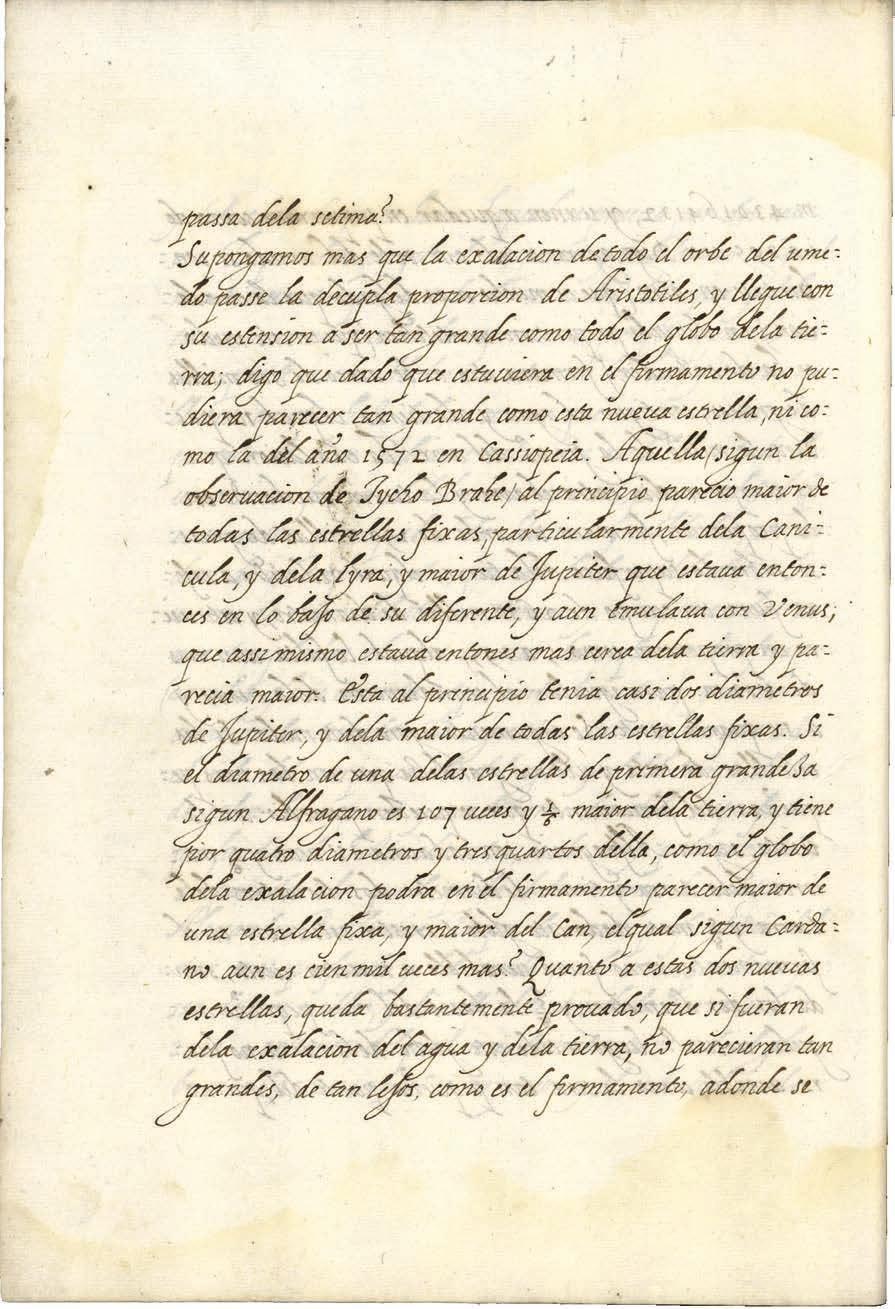 passa dela setima?
Supongamos mas que la exalacion de todo el orbe del ume-
do passe la decupla proporcion de Aristotiles, y llegue con
su estension a ser tan grande como todo el globo dela tie-
rra; digo que dado que estuviera en el firmamento no pu-
diera parecer tan grande como esta nueva estrella, ni co-
mo la del año 1572 en Cassiopeia. Aquella (sigun la
observacion de Tycho Brahe) al principio parecio maior de
todas las estrellas fixas, particularmente dela Cani-
cula, y dela lyra, y maior de Jupiter que estava enton-
ces en lo bajo de su diferente, y aun emulava con Venus;
que assimismo estava entones mas cerca dela tierra y pa-
recia maior. Esta al principio tenia casi dos diametros
de Jupiter, y dela maior de todas las estrellas fixas. Si
el diametro de una delas estrellas de primera grandeza
sigun Alfragano es 107 veces y 1/6 maior dela tierra, y tiene
por quatro diametros y tres quartos della, como el globo
dela exalacion podra en el firmamento parecer maior de
una estrella fixa, y maior del Can, elqual sigun Carda-
no aun es cien mil veces mas? Quanto a estas dos nuevas
estrellas, queda bastantemente provado, que si fueran
dela exalacion del agua y dela tierra, no parecieran tan
grandes, de tan lejos, como es el firmamento, adonde se